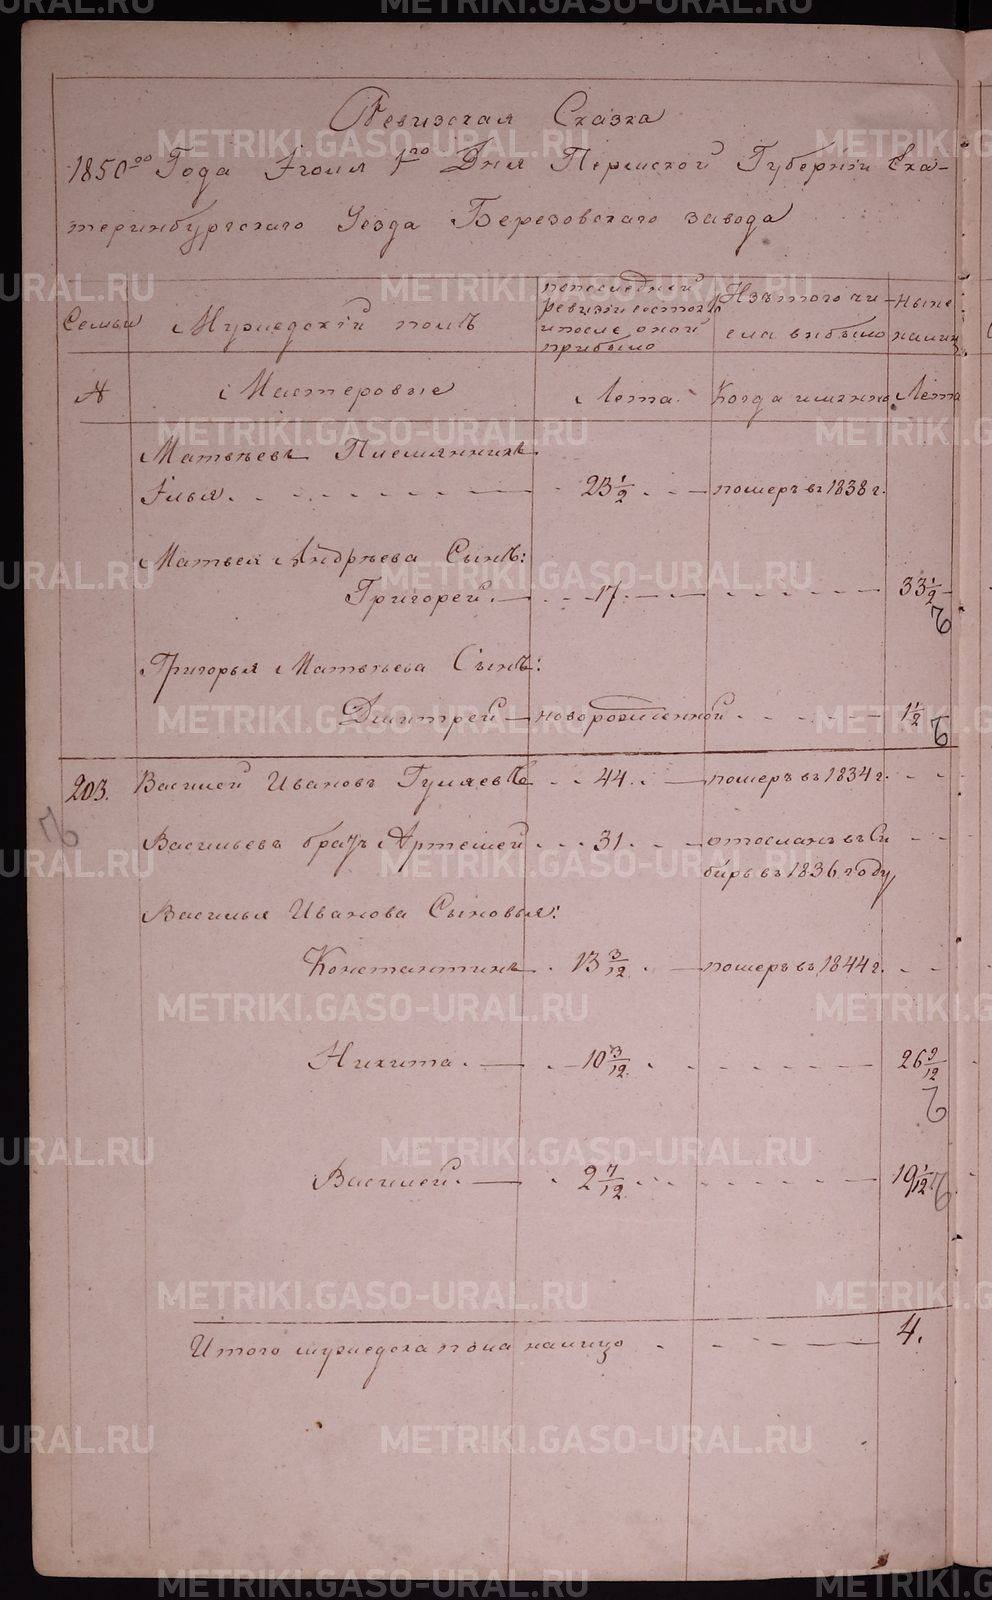 Ревизская Сказка
1850го Года Iюля 1го Дня Пермской Губернiи Ека-
теринбургскаго Уезда Березовскаго завода
Семьи
Мужескiй полъ
попоследней ревизiи состояло и после оной прибыло
Изътого чи сла выбыло
Ныне налицо
№
Мастеровые
Лета.
Когда имянно
Лета
Матвеевъ Племянникъ
Iлья. 23 1/2 померъ въ 1838 г.
Матвея Андреева Сынъ:
Григорей. 17. 33 1/2
Григорья Матвеева Сынъ:
Дмитрей новорожденной 1 1/2
203. Василей Ивановъ Гуляевъ 44. померъ въ 1834 г.
Васильевъ братъ Артемей 31. отосланъ въ Си
бирь въ 1836 году
Василья Иванова Сыновья:
Константинъ 13 3/12 померъ въ 1844 г.
Никита. 10 3/12. 26 9/12
Василей. 2 7/12. 19 1/12
Итого мужеска пола налицо 4.
METRIKI.GASO-URAL.RU